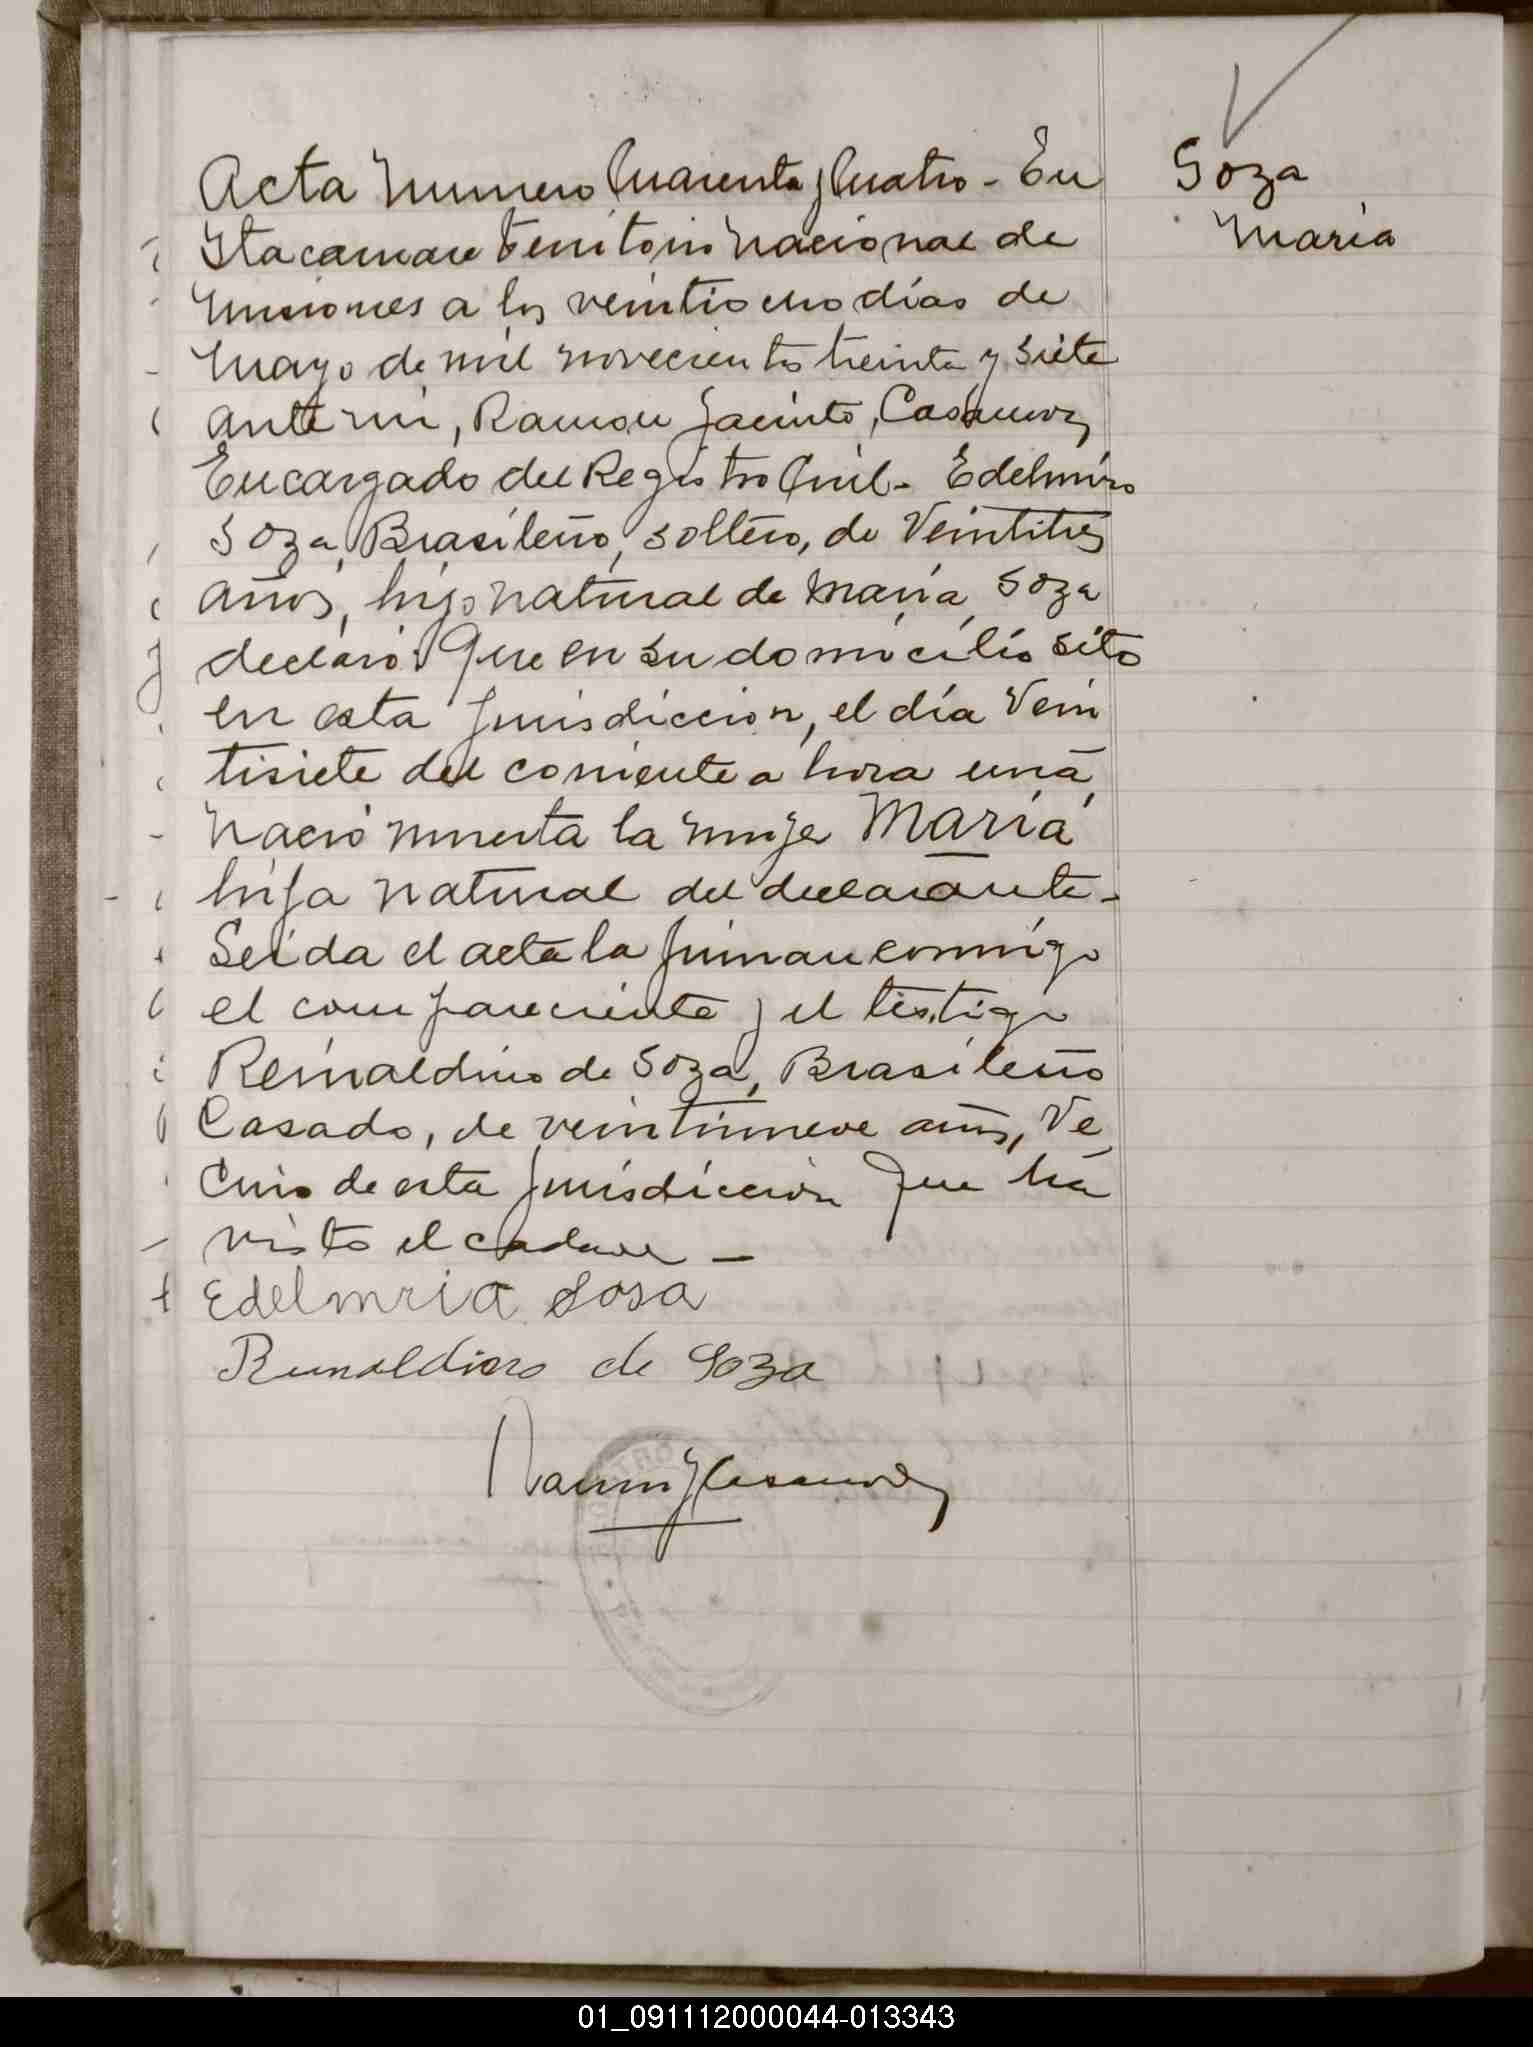 Acta Numero Cuarenta y Cuatro - En
Soza
Maria
Itacaruare Territorio Nacional de
Misiones a los veintiocho días de
Mayo de mil novecientos treinta y siete
ante mi, Ramon Jacinto Casanova,
Encargado del Registro Civil - Edelmiro
Soza, Brasileño, soltero, de Veintitres
años, hijo natural de Maria Soza
declaró: Que en su domicilio sito
en esta jurisdiccion, el día Vein
tisiete del corriente a hora una,
nació muerta la mujer Maria
hija natural del declarante -
Leida el acta la firman conmigo
el compareciente y el testigo
Reinaldino de Soza, Brasileño
Casado, de veintinueve años, Ve
cino de esta jurisdiccion que ha
visto el cadaver -
Edelmria Sosa
Reinaldino de Soza
Ramon J Casanova
01_091112000044-013343